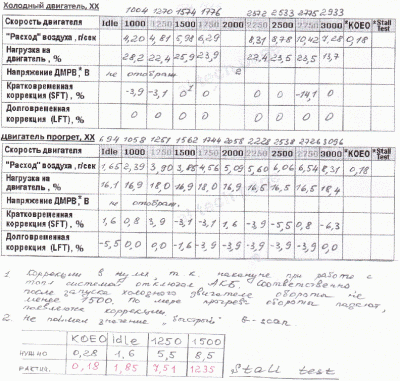 Холодный двигатель, ХХ 1004 1270 1574 1776 2572 2533 2775 2933
Скорость двигателя Idle 1000 1250 1500 1750 2000 2250 2500 2750 3000 *KOEO *Stall Test
"Расход" воздуха, г/сек 4,20 4,81 5,98 6,29 8,31 8,78 10,42 7,28 0,18
Нагрузка на двигатель, % 28,2 22,4 25,9 23,9 22,4 23,5 23,5 13,7
Напряжение ДМРВ, В не отображ.
Кратковременная коррекция (SFT), % -3,9 -3,1 0 0 0 0 -14,1 0
Долговременная коррекция (LFT), % 0 0 0 0 0 0 0 0
Двигатель прогрет, ХХ 694 1058 1251 1562 1744 2058 2228 2538 2726 3096
Скорость двигателя Idle 1000 1250 1500 1750 2000 2250 2500 2750 3000 *KOEO *Stall Test
"Расход" воздуха, г/сек 1,65 2,39 3,90 3,85 4,56 5,09 5,60 6,06 6,54 8,31 0,18
Нагрузка на двигатель, % 16,1 16,9 18,0 16,9 18,0 16,9 16,5 16,5 16,5 18,4
Напряжение ДМРВ, В не отображ.
Кратковременная коррекция (SFT), % 1,6 0,8 3,9 -3,1 -3,1 1,6 -3,9 -5,5 0,8 -6,3
Долговременная коррекция (LFT), % -5,5 0,0 0,0 -1,6 -3,9 -3,9 -3,9 -3,9 -3,9 0,0
1. Коррекции в нулях, т.к. накануне при работе с
топл системой отключал АКБ. Соответственно
после запуска холодного двигателя обороты не
менее 1500. По мере прогрева обороты падают,
появляются коррекции.
2. Не поймал значение "быстрой" B-scan
KOEO Idle 1250 1500
НУЖНО 0,28 1,6 5,5 8,5
ФАКТИЧ. 0,18 1,85 7,51 12,35 Stall test